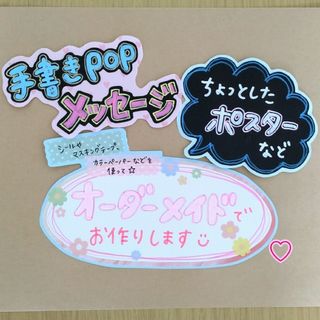 手書きpop
メッセージ
ちょっとした
ポスター
など
シールや
マスキングテープ、
カラーペーパーなどを
使って☆
オーダーメイドで
お作りします